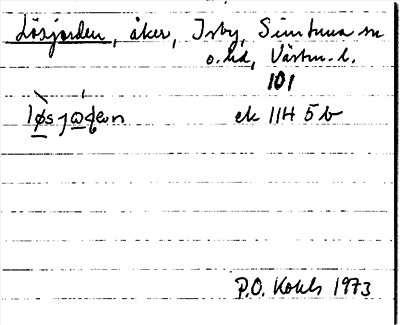 Lösjorden, åker, Isby, Simtuna sn
o. hd, Västm. l.
101
løsjoɖen ek 11H 5b
P.O. Kohls 1973